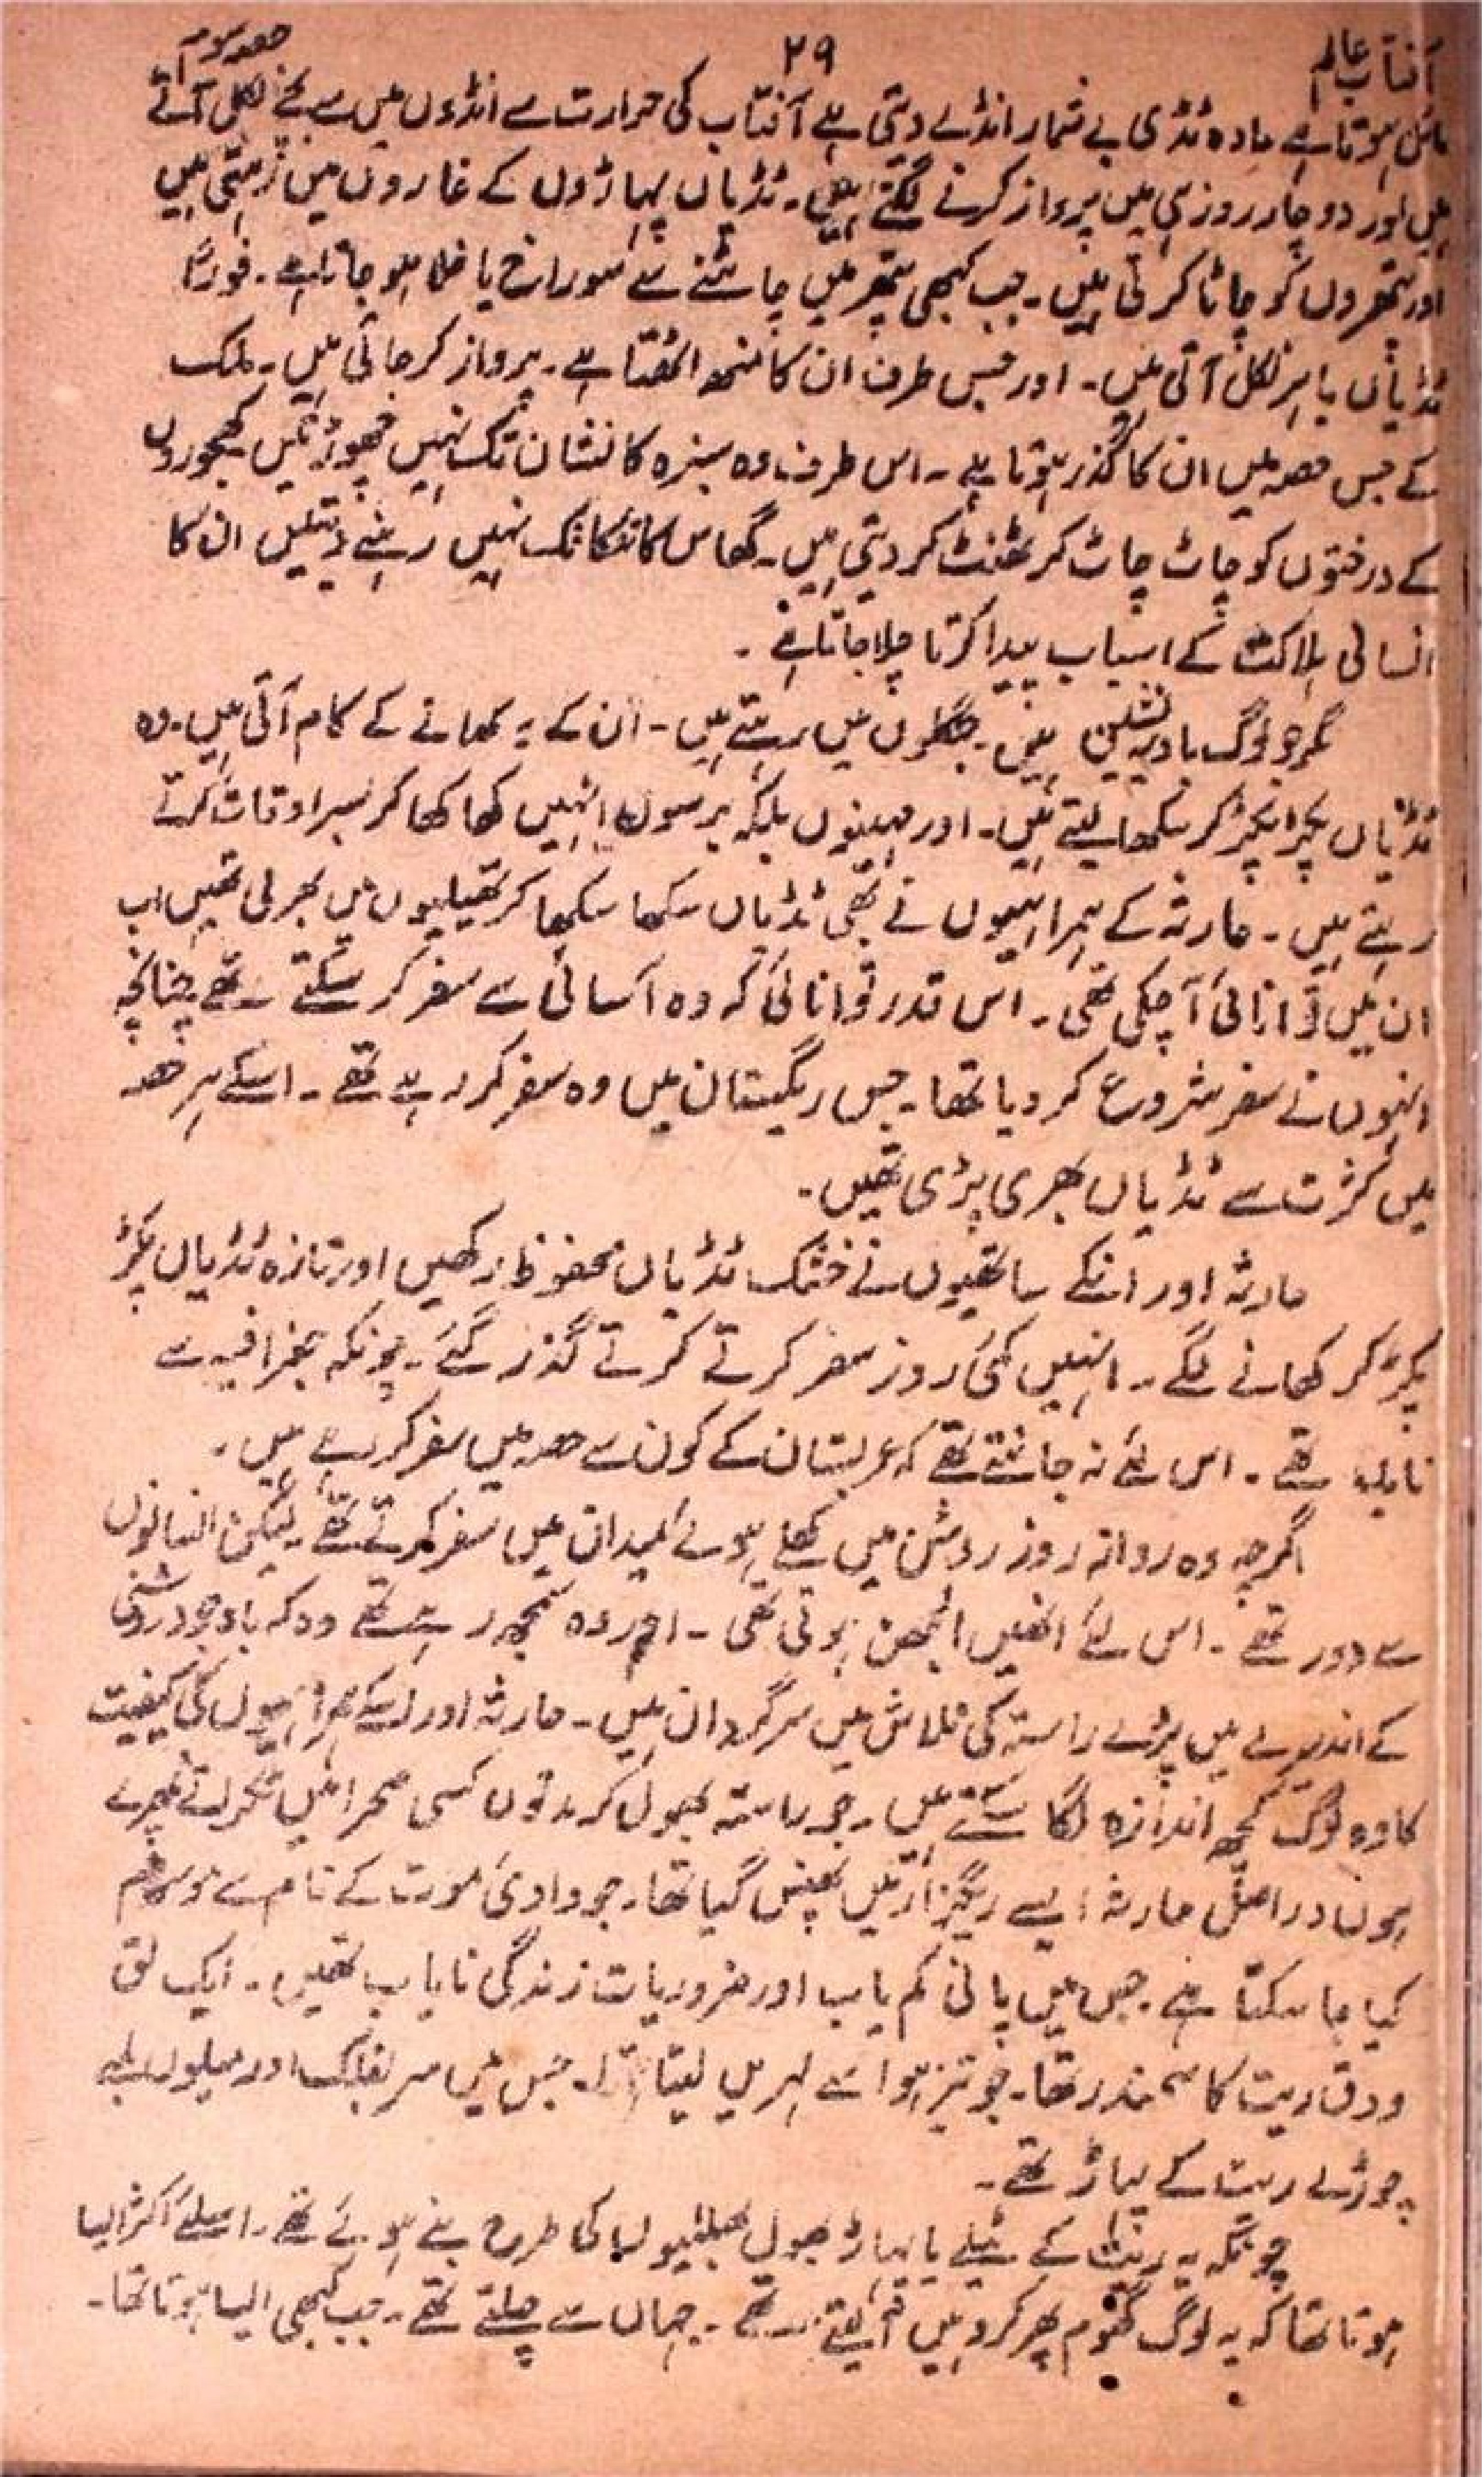 آفتاب عالم ۲۹ حصہ سوم
مائل ہوتا ہے مادہ ٹڈی بے شمار انڈے دیتی ہے آفتاب کی حرارت سے انڈوں میں سے بچے نکل آتے
ہیں اور دو چار روز ہی میں پرواز کرنے لگتے ہیں۔ ٹڈیاں پہاڑوں کے غاروں میں رہتی ہیں
اور پتھروں کو چاٹا کرتی ہیں۔ جب کبھی پتھر میں چاٹنے سے سوراخ یا خلا ہو جاتا ہے۔ فوراً
ٹڈیاں باہر نکل آتی ہیں۔ اور جس طرف ان کا منھ اٹھتا ہے۔ پرواز کر جاتی ہیں۔ ملک
کے جس حصہ میں ان کا گذر ہوتا ہے۔ اس طرف وہ سبزہ کا نشان تک نہیں چھوڑتیں کھجوروں
کے درختوں کو چاٹ چاٹ کر ٹھنٹ کر دیتی ہیں۔ گھاس کا تنکا تک نہیں رہنے دیتیں ان کا
انسانی ہلاکت کے اسباب پیدا کرتا چلا جاتا ہے۔
مگر جو لوگ بادیہ نشین ہیں۔ جنگلوں میں رہتے ہیں۔ ان کے یہ کھانے کے کام آتی ہیں۔ وہ
ٹڈیاں پکڑ پکڑ کر سکھا لیتے ہیں۔ اور مہینوں بلکہ برسوں انہیں کھا کھا کر بسر اوقات کرتے
رہتے ہیں۔ حارثہ کے ہمراہیوں نے بھی ٹڈیاں سکھا سکھا کر تھیلیوں میں بھر لی تھیں اب
ان میں توانائی آ چکی تھی۔ اس قدر توانائی کہ وہ آسانی سے سفر کر سکتے تھے چنانچہ
انہوں نے سفر شروع کر دیا تھا۔ جس ریگستان میں وہ سفر کر رہے تھے۔ اسکے ہر حصہ
میں کثرت سے ٹڈیاں بھری پڑی تھیں۔
حارثہ اور انکے ساتھیوں نے خشک ٹڈیاں محفوظ رکھیں اور تازہ ٹڈیاں پکڑ
پکڑ کر کھانے لگے۔ انہیں کئی روز سفر کرتے کرتے گذر گئے۔ چونکہ جغرافیہ سے
نابلد تھے۔ اس لئے نہ جانتے تھے کہ عربستان کے کون سے حصہ میں سفر کر رہے ہیں۔
اگرچہ وہ روانہ روز روشن میں کھلے ہوئے میدان میں سفر کرتے تھے۔ لیکن انسانوں
سے دور تھے۔ اس لئے انھیں الجھن ہوتی تھی۔ اور وہ سمجھ رہے تھے وہ کہ باوجود روشنی
کے اندھیرے میں پڑے راستہ کی تلاش میں سرگرداں ہیں۔ حارثہ اور اسکے ہمراہیوں کی کیفیت
کا وہ لوگ کچھ اندازہ لگا سکتے ہیں۔ جو راستہ بھول کر مدتوں کسی صحرا میں ٹکراتے پھرے
ہوں دراصل حارثہ ایسے ریگزار میں پھنس گیا تھا۔ جو وادئ موت کے نام سے موسوم
کیا جا سکتا ہے۔ جس میں پانی کم یاب اور ضروریات زندگی نایاب تھیں۔ ایک لق
و دق ریت کا سمندر تھا۔ جو تیز ہوا سے لہریں لیتا تھا۔ جس میں سر بفلک اور میلوں لمبے
چوڑے ریت کے پہاڑ تھے۔
چونکہ یہ ریت کے ٹیلے یا پہاڑ بھول بھلیوں کی طرح بنے ہوئے تھے۔ اسلئے اکثر ایسا
ہوتا تھا کہ یہ لوگ گھوم پھر کر وہیں آ جاتے تھے۔ جہاں سے چلتے تھے۔ جب کبھی ایسا ہوتا تھا۔